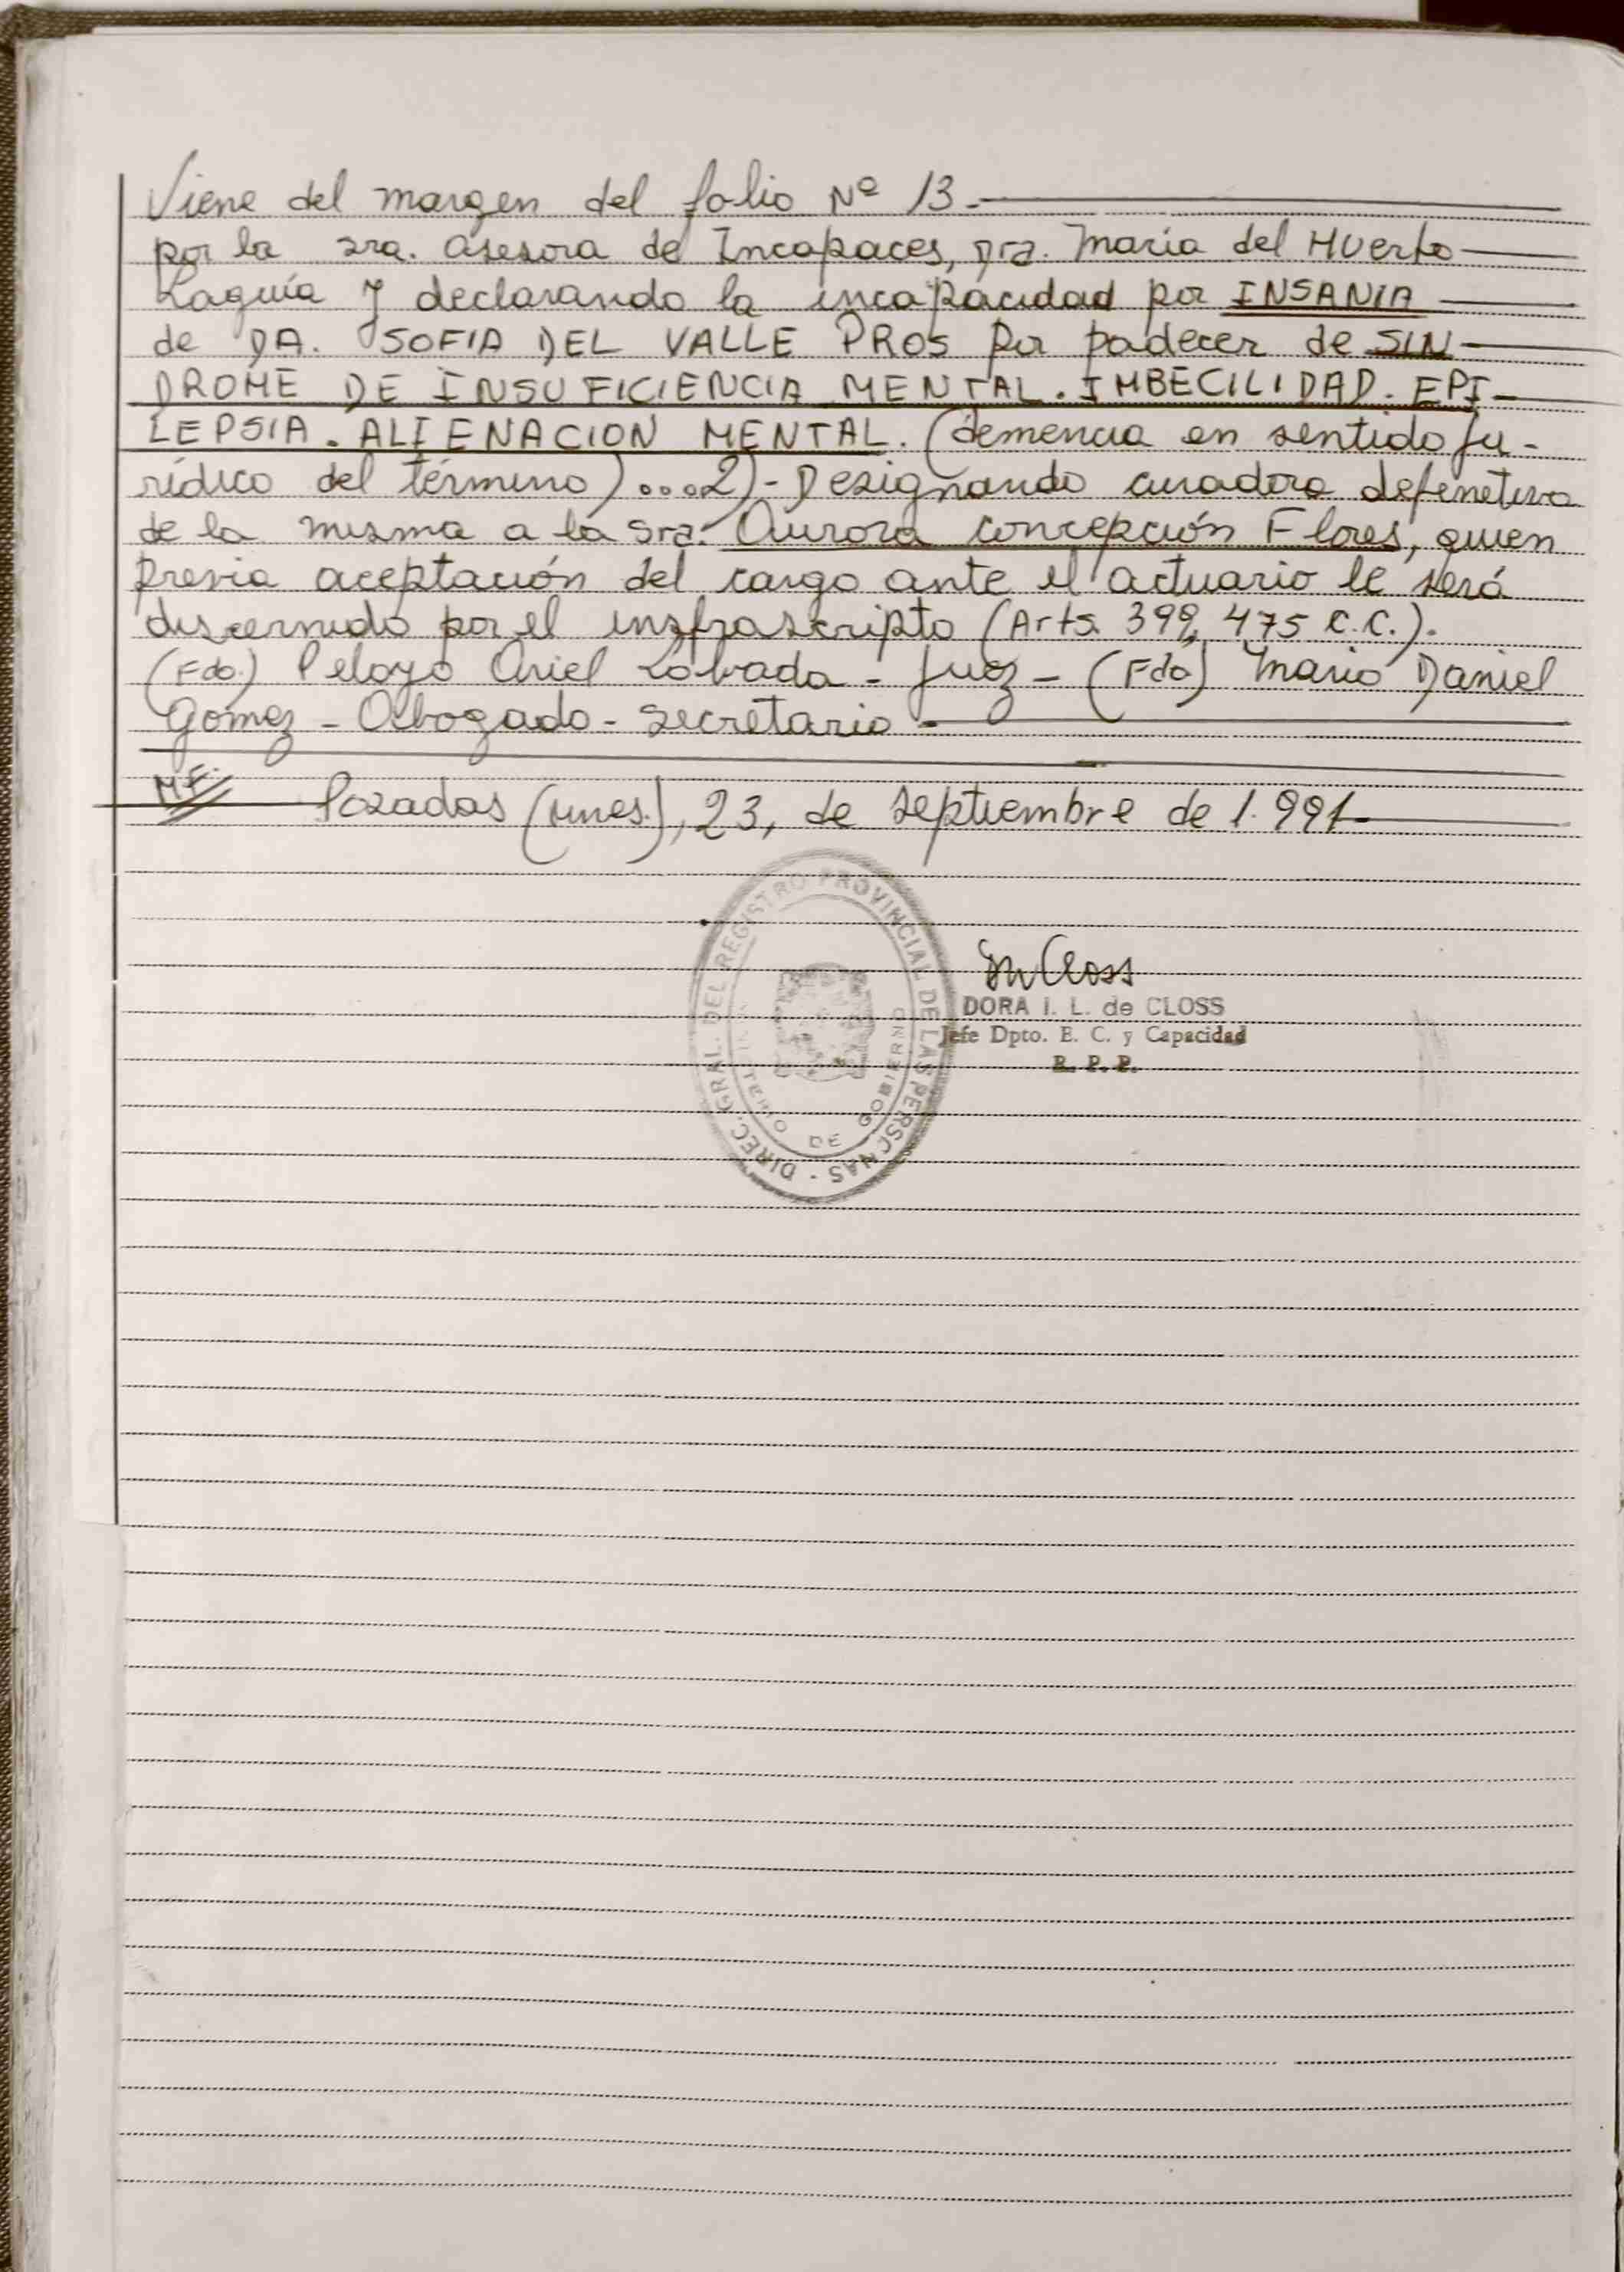 Viene del margen del folio Nº 13.-
por la sra. Asesora de Incapaces, Dra. María del Huerto
Laguía y declarando la incapacidad por INSANIA
de DA. SOFIA DEL VALLE PROS por padecer de SIN
DROME DE INSUFICIENCIA MENTAL. IMBECILIDAD. EPI-
LEPSIA. ALIENACION MENTAL. (demencia en sentido ju-
rídico del término)....2)- Designando curadora defenetiva
de la misma a la Sra. Aurora Concepción Flores, quien
previa aceptación del cargo ante el actuario le será
discernido por el insfrascripto (Arts. 399, 475 C.C.).
(Fdo.) Pelayo Ariel Labrada - Juez - (Fdo) Mario Daniel
Gomez - Abogado - Secretario -
M.F.
Posadas (Mnes.), 23, de septiembre de 1.991-
DIREC. GRAL. DEL REGISTRO PROVINCIAL DE LAS PERSONAS -
MINISTERIO DE GOBIERNO
DORA I. L. de CLOSS
Jefe Dpto. E. C. y Capacidad
R. P. P.